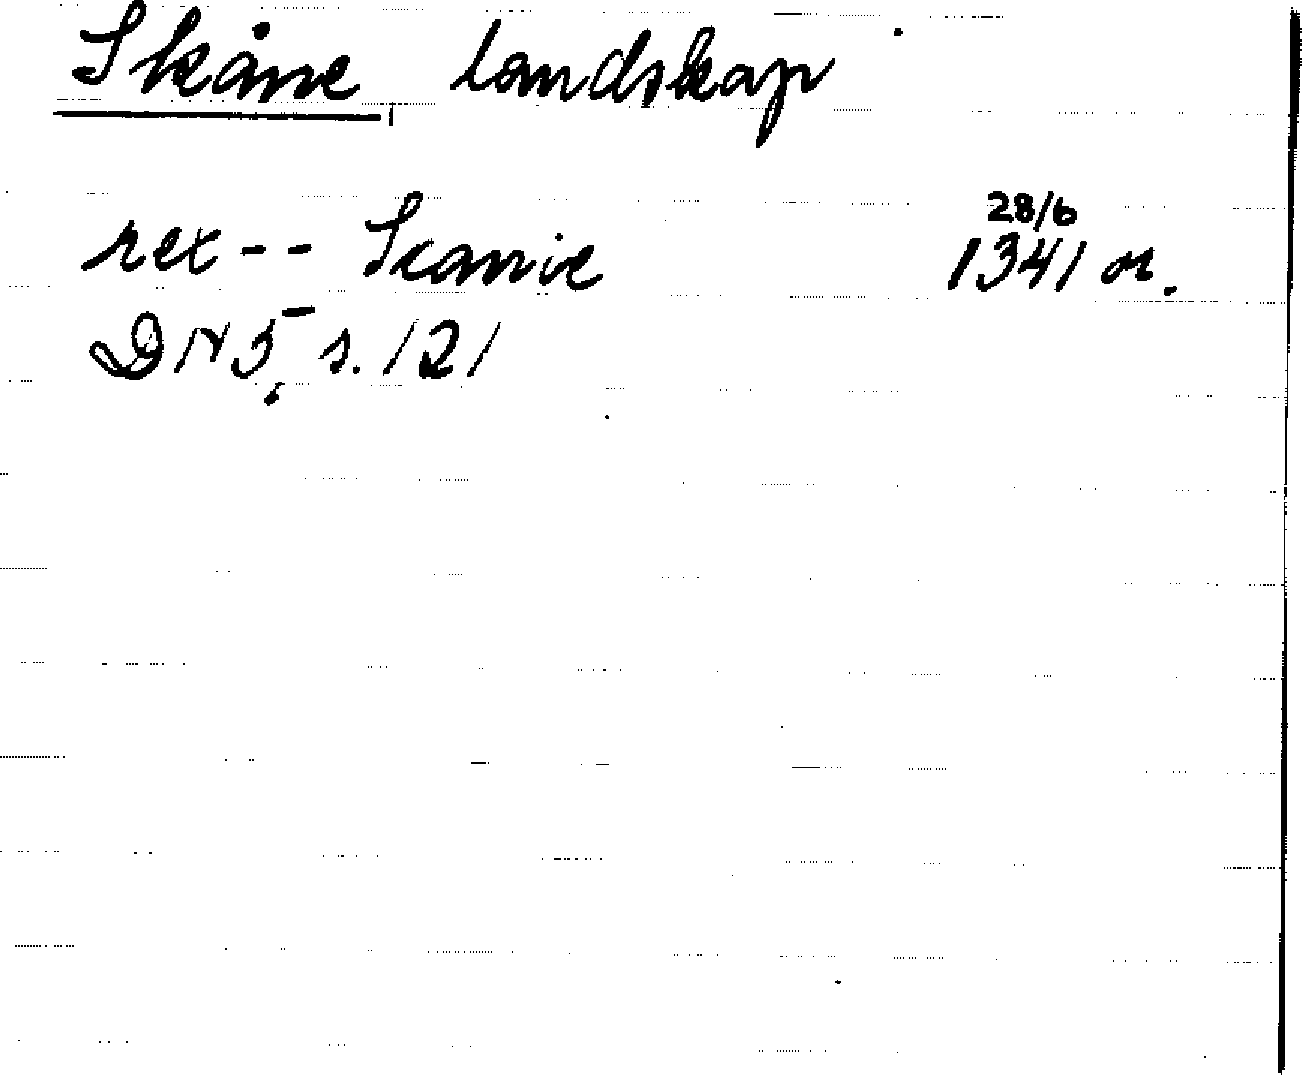 Skåne landskap
rex -- Scanie 28/6 1341 or.
DN 5, s. 121